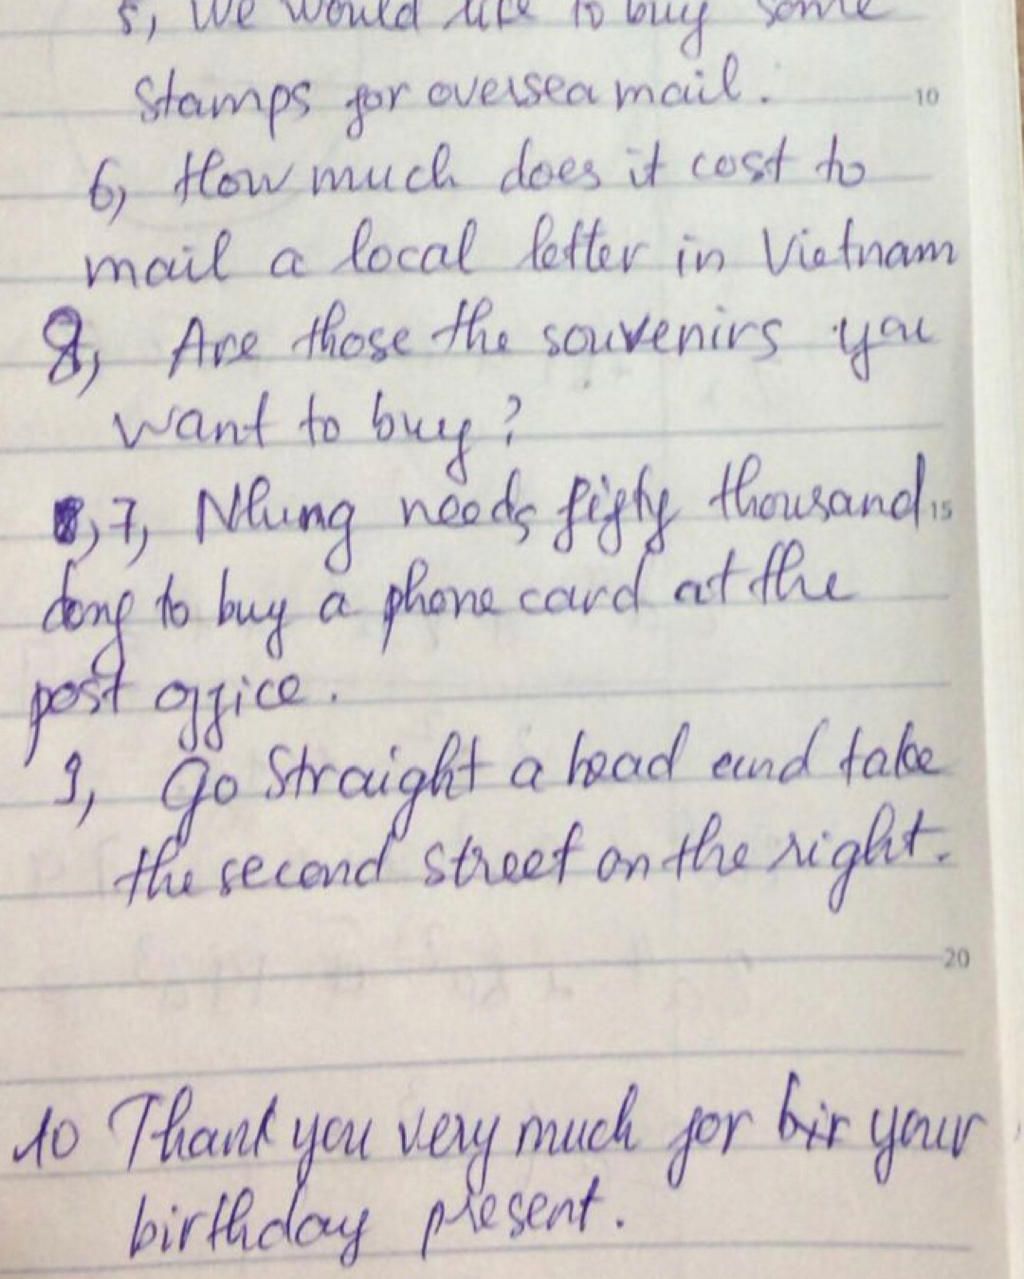 5, We would like to buy some
stamps for oversea mail. 10
6, How much does it cost to
mail a local letter in Vietnam
8, Are those the souvenirs you
want to buy?
8, 7, Nhung needs fifty thousand 15
dong to buy a phone card at the
post office.
9, Go straight a head and take
the second street on the right.
20
10 Thank you very much for bir your
birthday present.